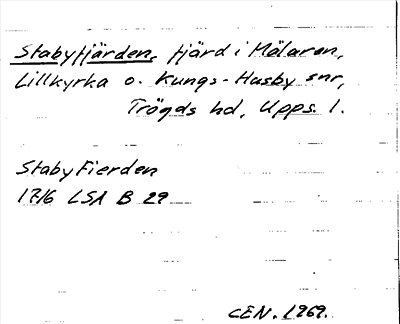 Stabyfjärden, fjärd i Mälaren,
Lillkyrka o. Kungs-Husby snr,
Trögds hd, Upps. l.
Staby Fierden
1716 LSA B 29
CEN. 1969.